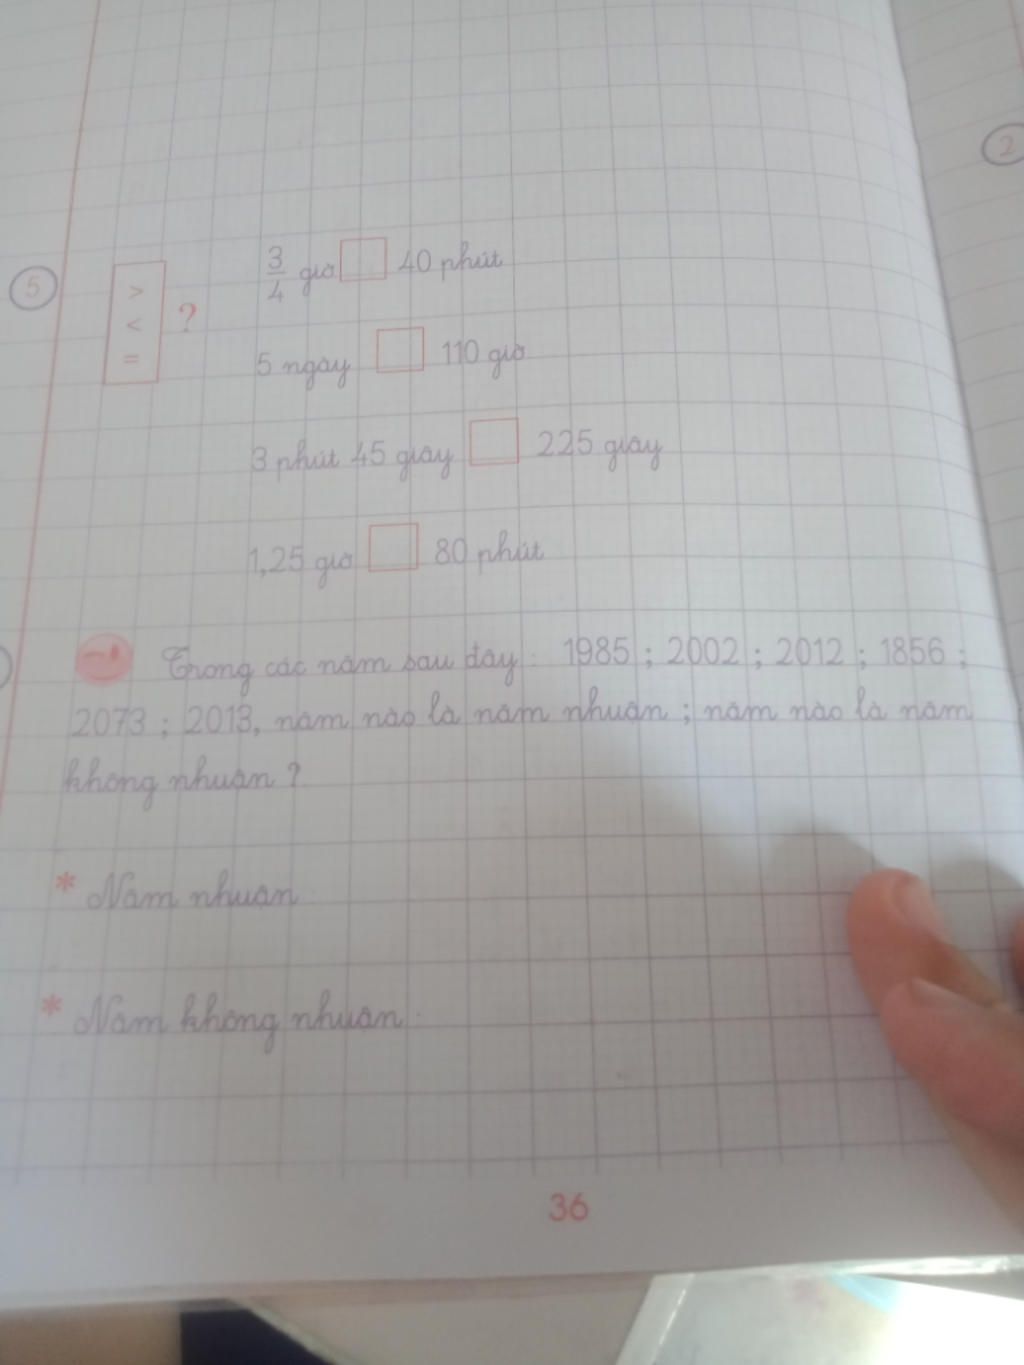 2
5
>
<
=
?
3/4 giờ □ 40 phút
5 ngày □ 110 giờ
3 phút 45 giây □ 225 giây
1,25 giờ □ 80 phút
Trong các năm sau đây: 1985 ; 2002 ; 2012 ; 1856 ;
2073 ; 2013, năm nào là năm nhuận ; năm nào là năm
không nhuận ?
* Năm nhuận:
* Năm không nhuận:
36